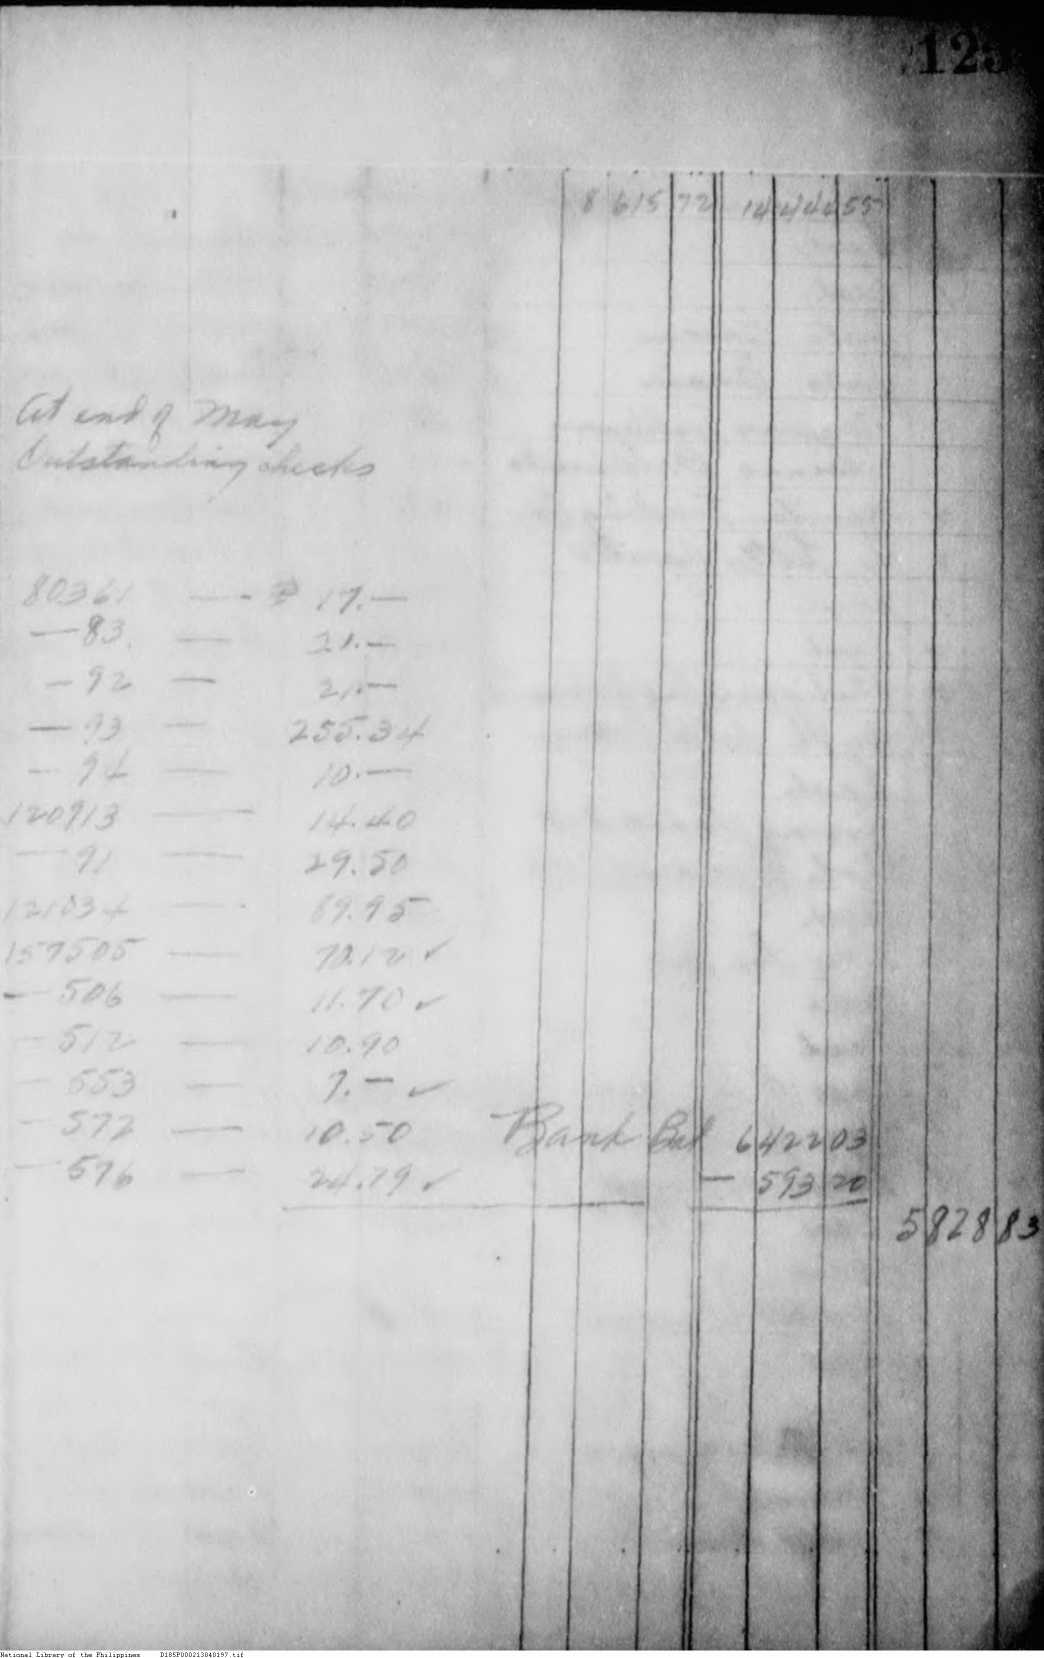 125
8 615 72 14 444 55
At end of May
Outstanding checks
80361 — ₱ 17.—
— 83. — 21.—
— 92 — 21.—
— 93 — 255.34
— 94 — 10.—
120913 — 14.40
— 91 — 29.50
121034 — 89.95
157505 — 70.12 ✓
— 506 — 11.70 ✓
— 512 — 10.90
— 553 — 7.— ✓
— 572 — 10.50 Bank Bal 6422 03
— 576 — 24.79 ✓ — 593 20
5828 83
National Library of the Philippines D185P000213040197.tif